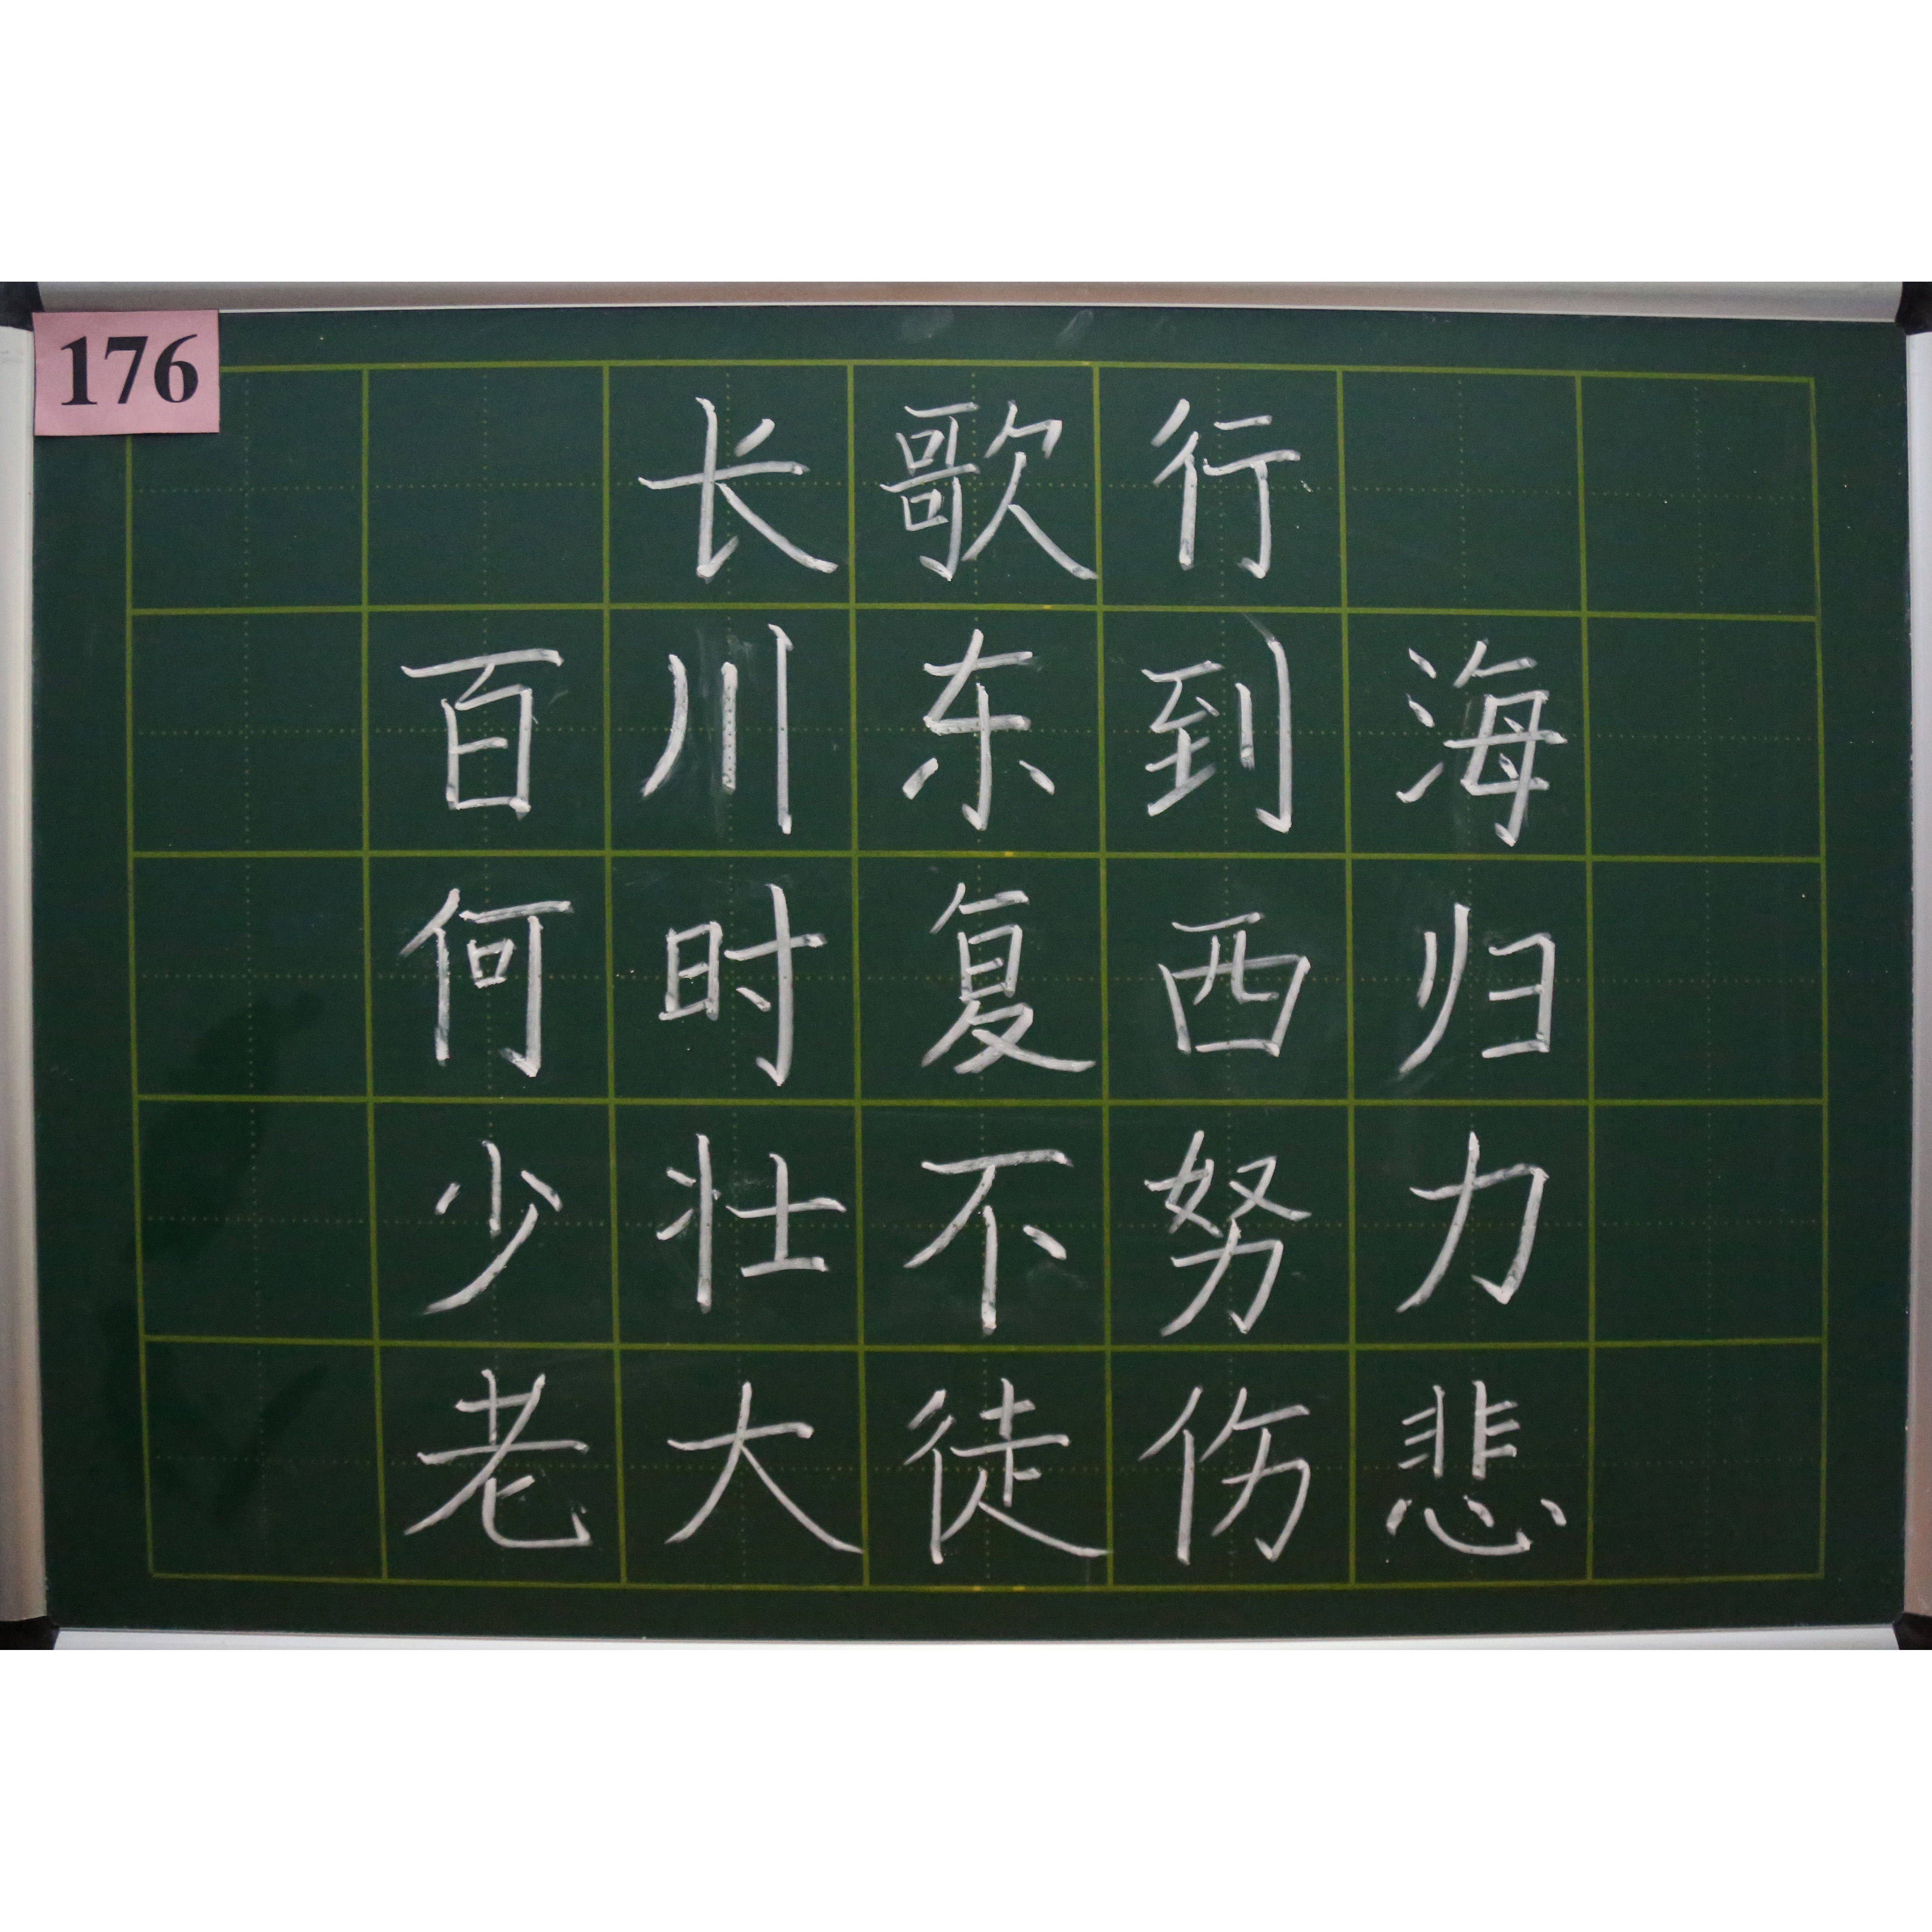 176
长歌行
百川东到海
何时复西归
少壮不努力
老大徒伤悲